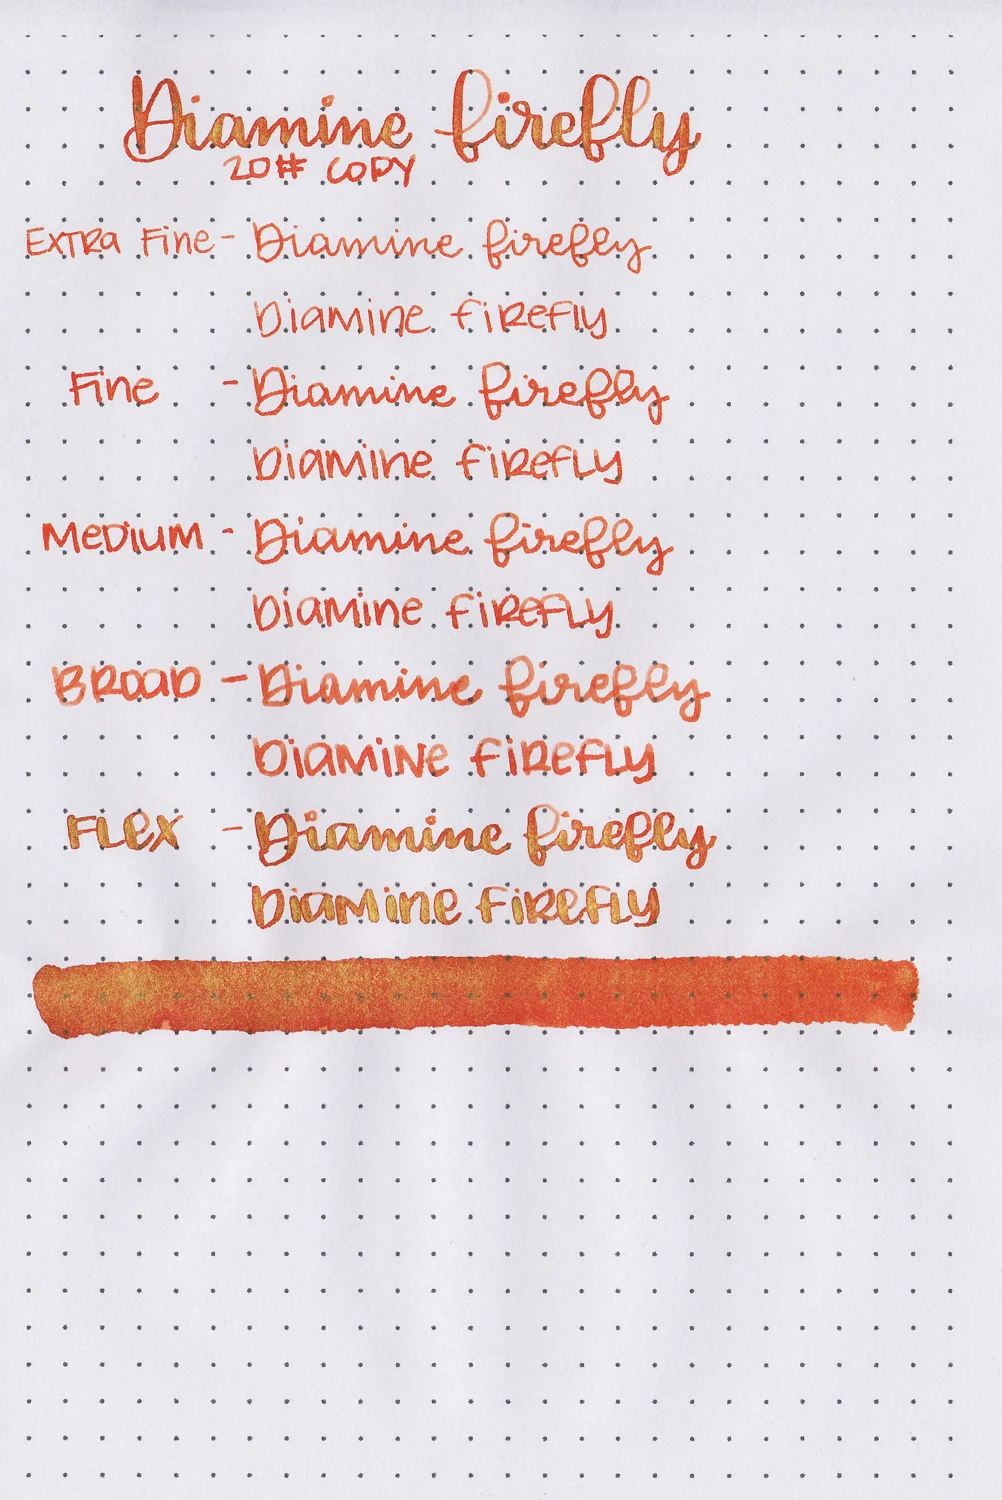 Diamine firefly
20# COPY
Extra Fine - Diamine firefly
Diamine firefly
Fine - Diamine firefly
Diamine firefly
Medium - Diamine firefly
Diamine firefly
Broad - Diamine firefly
Diamine firefly
Flex - Diamine firefly
Diamine firefly